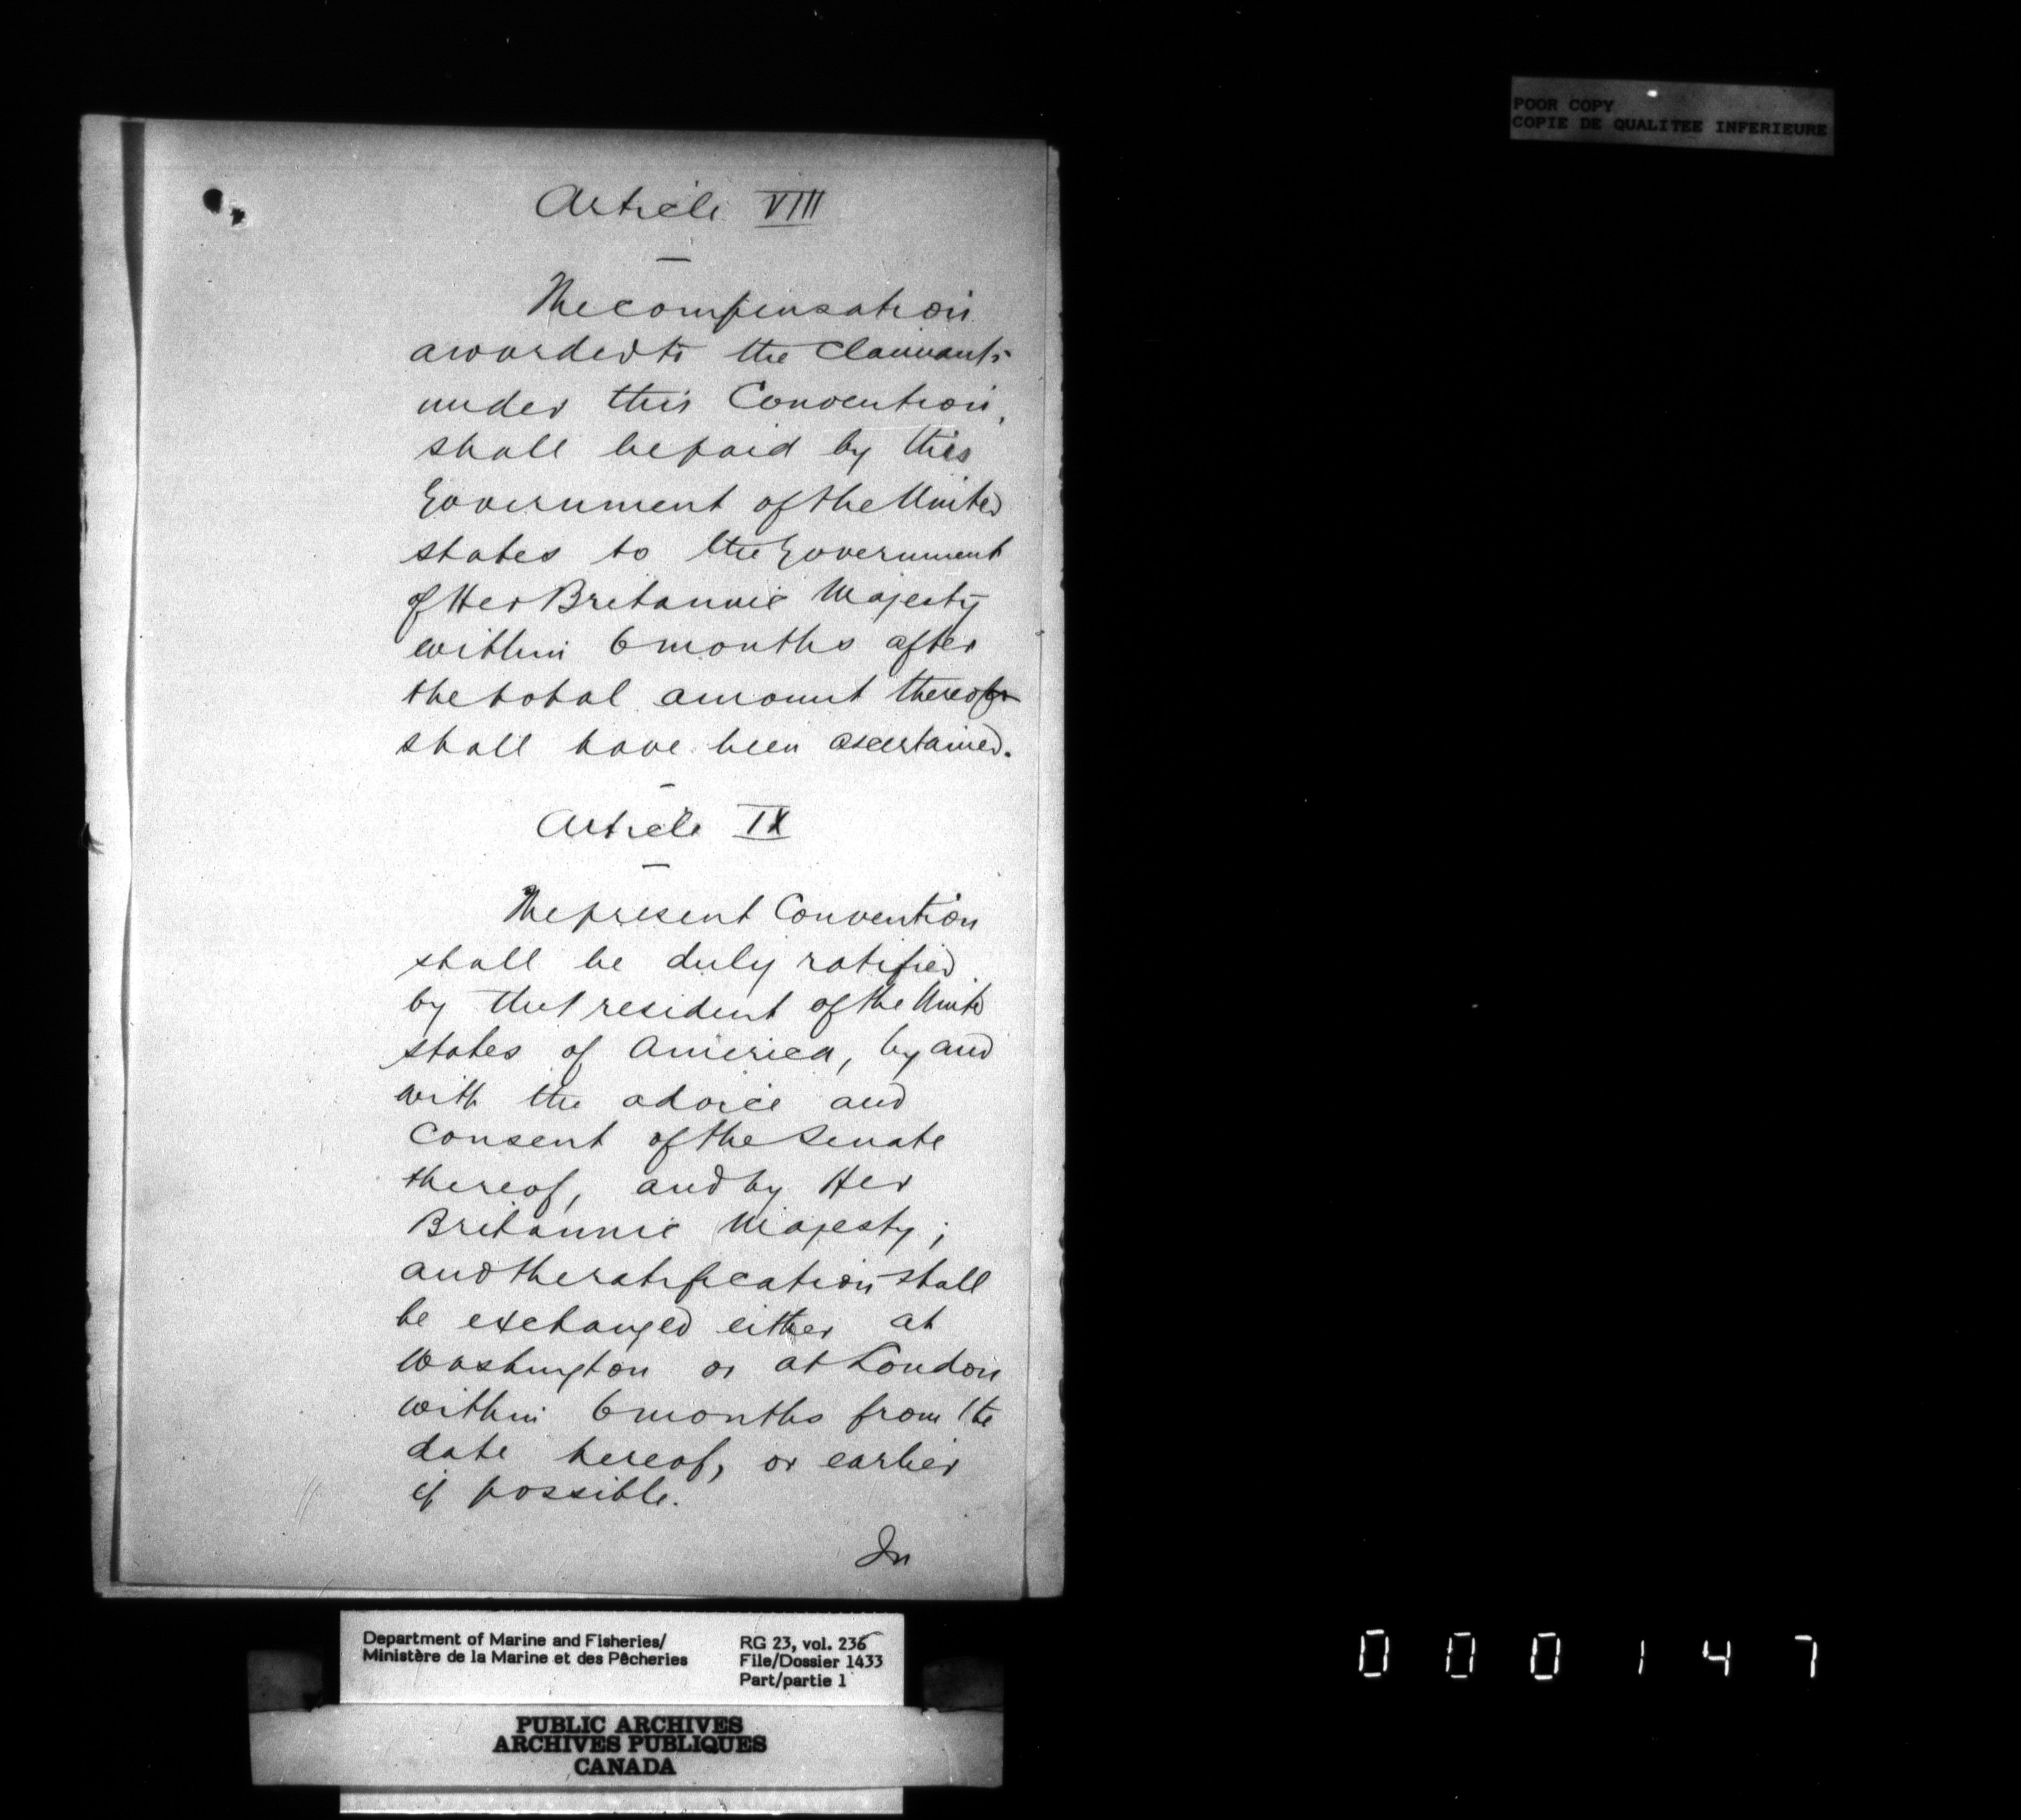 POOR COPY
COPIE DE QUALITEE INFERIEURE
Article VIII
The compensation
awarded to the Claimants
under this Convention,
shall be paid by this
Government of the United
states to the Government
of Her Britannic Majesty
within 6 months after
the total amount thereof
shall have been ascertained.
Article IX
The present Convention
shall be duly ratified
by the President of the United
states of America, by and
with the advice and
Consent of the Senate
thereof, and by Her
Britannic Majesty;
and the ratification shall
be exchanged either at
Washington or at London
within 6 months from the
date hereof, or earlier
if possible.
In
Department of Marine and Fisheries/
Ministère de la Marine et des Pêcheries
RG 23, vol. 236
File/Dossier 1433
Part/partie 1
PUBLIC ARCHIVES
ARCHIVES PUBLIQUES
CANADA
000147